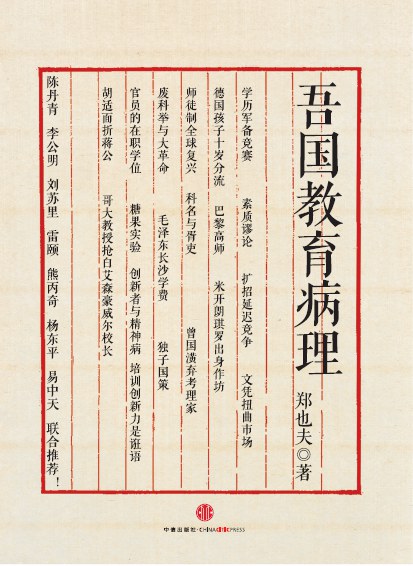 吾国教育病理
郑也夫◎著
学历军备竞赛 素质谬论 扩招延迟竞争 文凭扭曲市场
德国孩子十岁分流 巴黎高师 米开朗琪罗出身作坊
师徒制全球复兴 科名与胥吏 曾国潢弃考理家
废科举与大革命 毛泽东长沙学费 独子国策
官员的在职学位 糖果实验 创新者与精神病 培训创新力是诳语
胡适面折蒋公 哥大教授抢白艾森豪威尔校长
陈丹青 李公明 刘苏里 雷颐 熊丙奇 杨东平 易中天 联合推荐!
中信出版社·CHINA CITIC PRESS